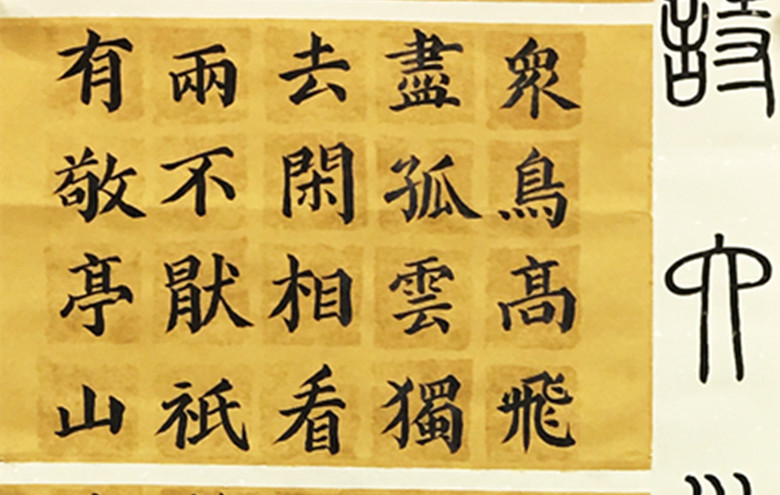 衆鳥高飛
盡孤雲獨
去閑相看
兩不猒祇
有敬亭山
詩
六